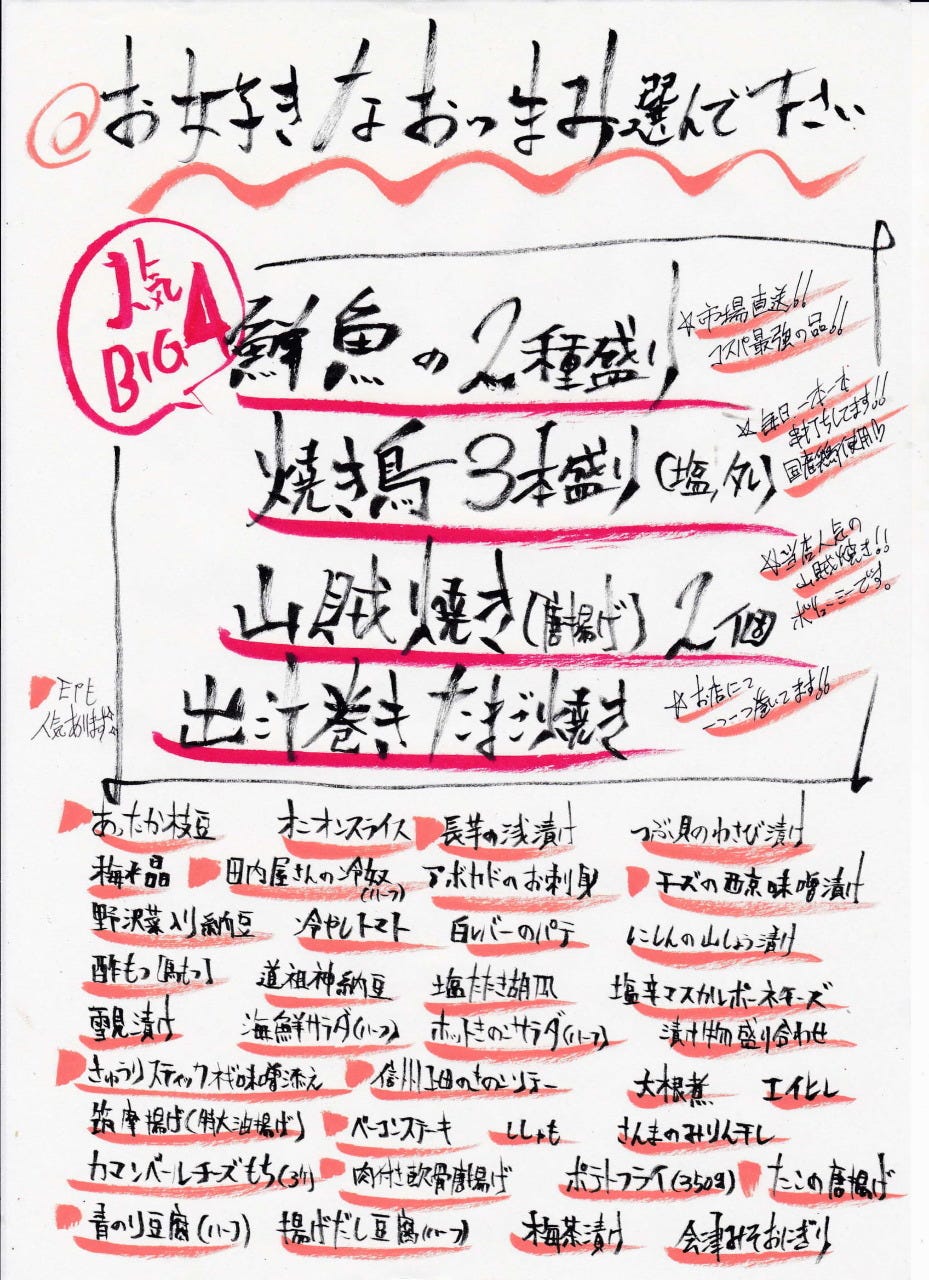 お好きなおつまみ選んで下さい
人気
BIG4
鮮魚の2種盛り
☆市場直送!!
コスパ最強の品!!
焼き鳥3本盛り(塩、タレ)
☆毎日一本一本
串打ちしてます!!
国産鶏使用♡
山賊焼き(唐揚げ)2個
☆当店人気の
山賊焼き!!
ボリューミーです。
出汁巻きたまご焼き
☆お店にて
一つ一つ巻いてます!!
人気あります
あったか枝豆 オニオンスライス 長芋の浅漬け つぶ貝のわさび漬け
梅水晶 田内屋さんの冷奴(ハーフ) アボカドのお刺身 チーズの西京味噌漬け
野沢菜入り納豆 冷やしトマト 白レバーのパテ にしんの山しょう漬け
酢もつ 道祖神納豆 塩たたき胡瓜 塩辛マスカルポーネチーズ
雪見漬け 海鮮サラダ(ハーフ) ホットきのこサラダ(ハーフ) 漬け物盛り合わせ
きゅうりスティック 味噌添え 信州 きのこソテー 大根煮 エイヒレ
筑摩揚げ(特大油揚げ) ベーコンステーキ ししゃも さんまのみりん干し
カマンベールチーズもち(3ケ) 肉付き軟骨唐揚げ ポテトフライ(350g) たこの唐揚げ
青のり豆腐(ハーフ) 揚げだし豆腐(ハーフ) 梅茶漬け 会津みそおにぎり